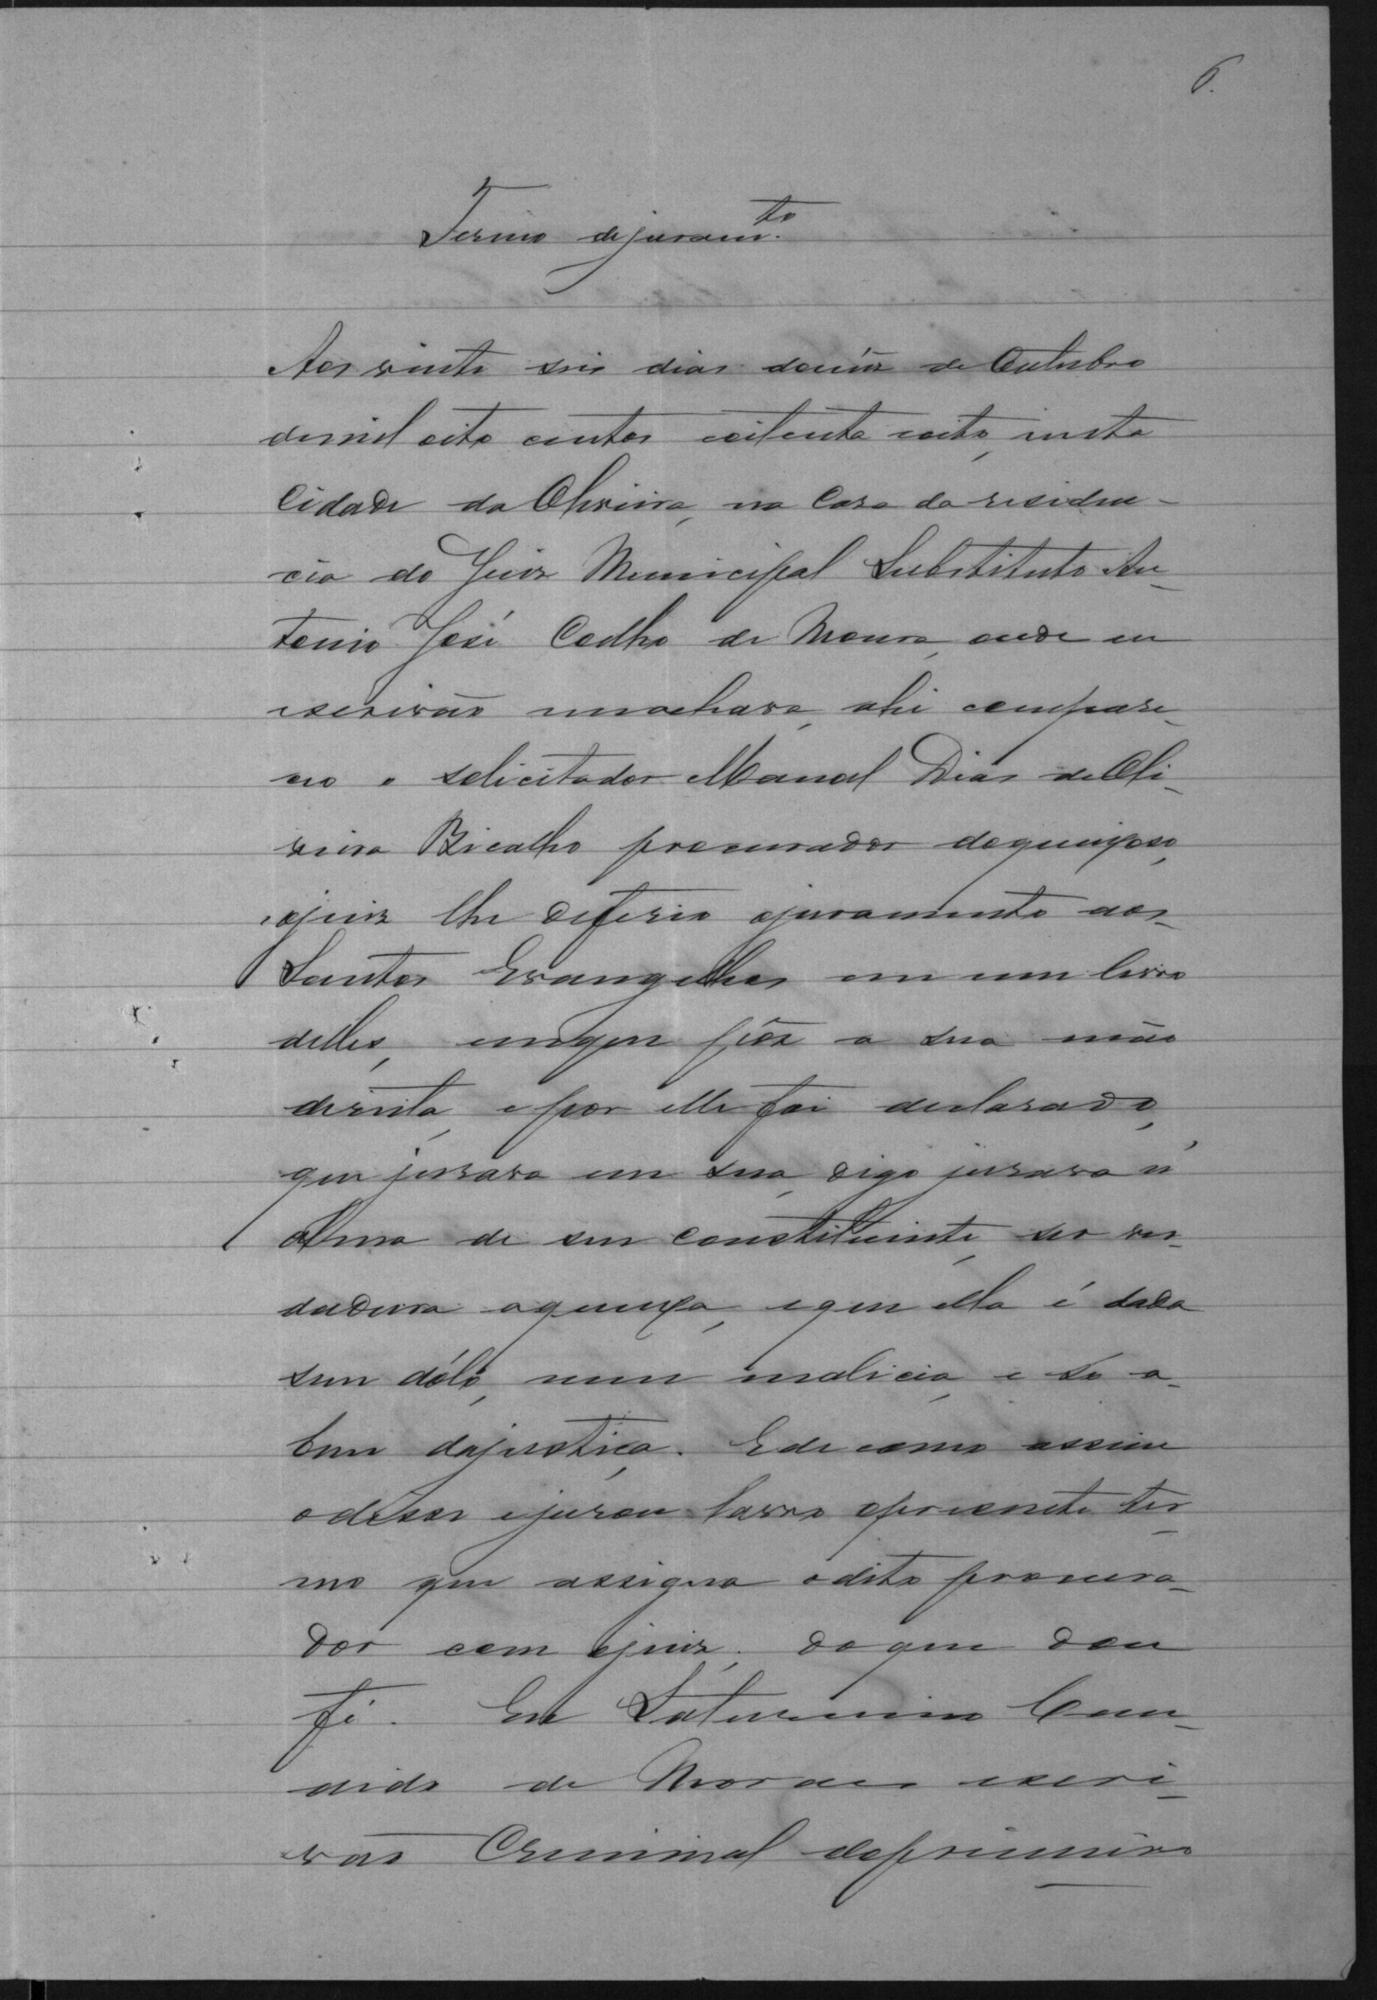 6.
Termo de juram.to
Aos vinte seis dias do mez de Outubro
de mil oito centos oitenta e oito, nesta
Cidade da Oliveira, na Casa da residen-
cia do Juiz Municipal Substituto An-
tonio José Coelho de Moura, onde eu
escrivão me achava, ahi compare-
ceo o solicitador Manoel Dias de Oli-
veira Bicalho procurador do queixoso,
o juiz lhe deferio o juramento aos
Santos Evangelhos em um livro
delles, em que pôz a sua mão
direita, e por elle foi declarado,
que jurava em sua, digo jurava n'
alma de seu constituinte, ser ver-
dadeira a queixa, e que ella é dada
sem dólo, nem malicia, e só a
bem da justiça. E de como assim
o disse e jurou lavro o presente ter-
mo que assigna o dito procura-
dor com o juiz; do que dou
fé. Eu Saturnino Can-
dido de Moraes escri-
vão Criminal do primeiro